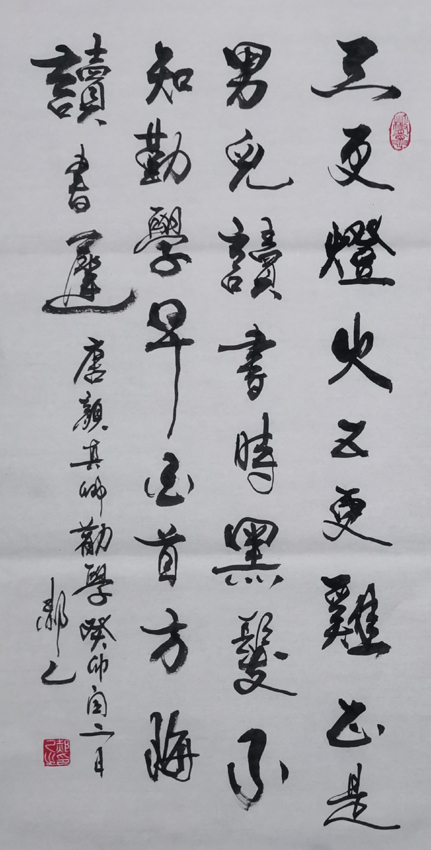 三更燈火五更雞正是
男兒讀書時黑髮不
知勤學早白首方悔
讀書遲 唐顏真卿勸學癸卯閏二月